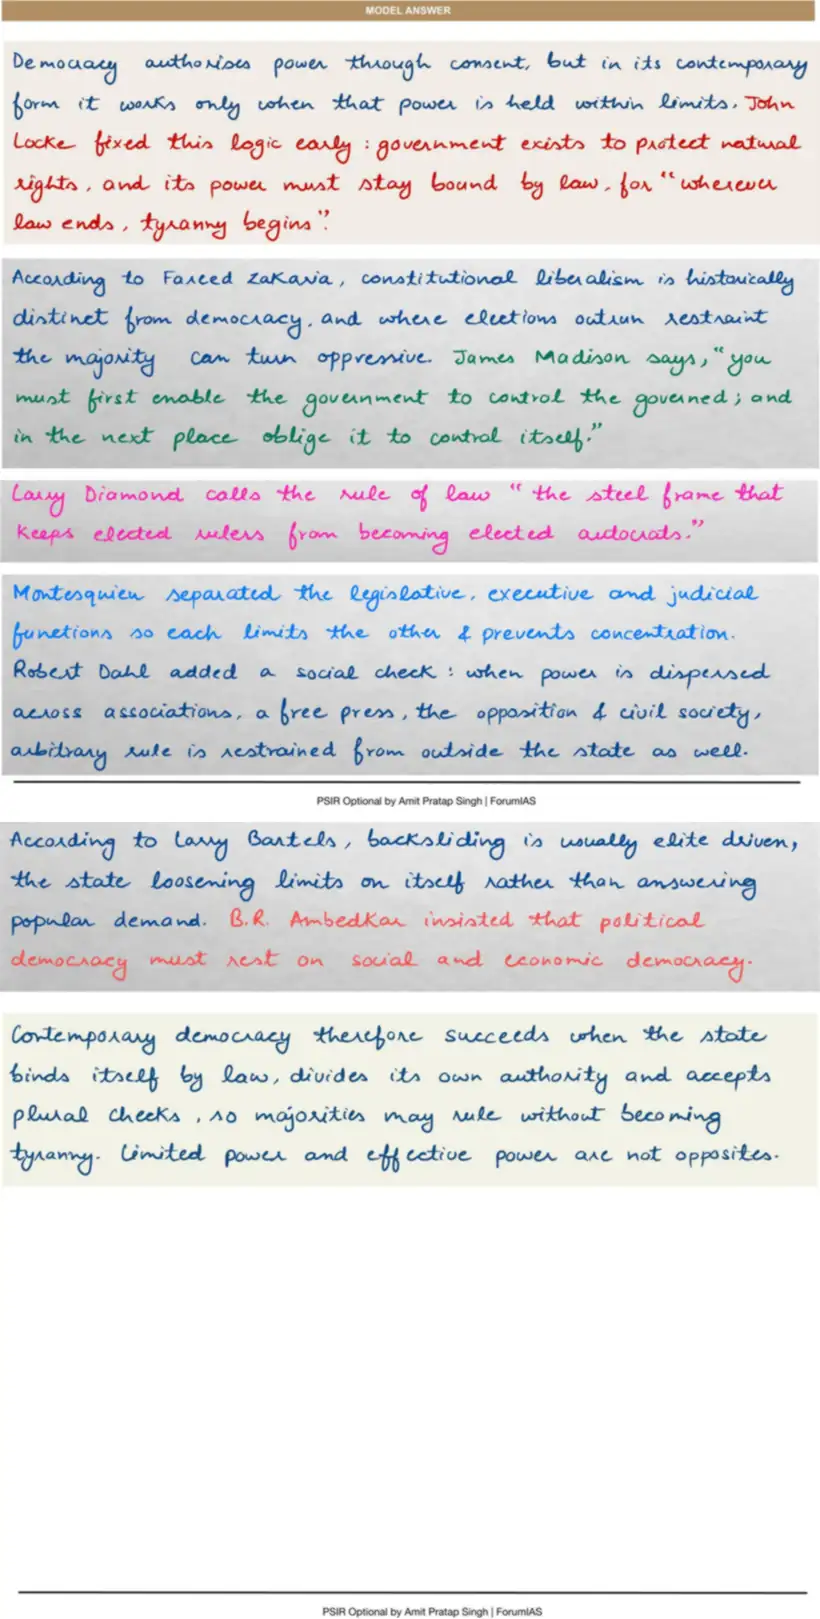 MODEL ANSWER
Democracy authorises power through consent, but in its contemporary
form it works only when that power is held within limits. John
Locke fixed this logic early : government exists to protect natural
rights, and its power must stay bound by law, for "wherever
law ends, tyranny begins".
According to Fareed Zakaria, constitutional liberalism is historically
distinct from democracy, and where elections outrun restraint
the majority can turn oppressive. James Madison says, "you
must first enable the government to control the governed; and
in the next place oblige it to control itself."
Larry Diamond calls the rule of law "the steel frame that
keeps elected rulers from becoming elected autocrats."
Montesquieu separated the legislative, executive and judicial
functions so each limits the other & prevents concentration.
Robert Dahl added a social check : when power is dispersed
across associations, a free press, the opposition & civil society,
arbitrary rule is restrained from outside the state as well.
PSIR Optional by Amit Pratap Singh | ForumIAS
According to Larry Bartels, backsliding is usually elite driven,
the state loosening limits on itself rather than answering
popular demand. B.R. Ambedkar insisted that political
democracy must rest on social and economic democracy.
Contemporary democracy therefore succeeds when the state
binds itself by law, divides its own authority and accepts
plural checks, so majorities may rule without becoming
tyranny. Limited power and effective power are not opposites.
PSIR Optional by Amit Pratap Singh | ForumIAS